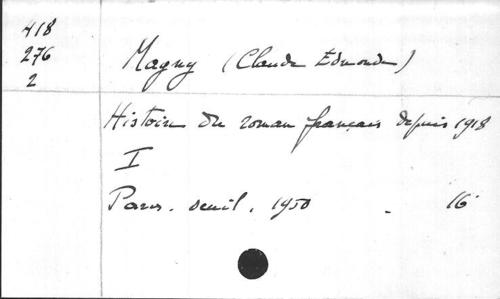 418
276
2
Magny (Claude Edmonde)
Histoire du roman français depuis 1918
I
Paris. Seuil. 1950 - 16°